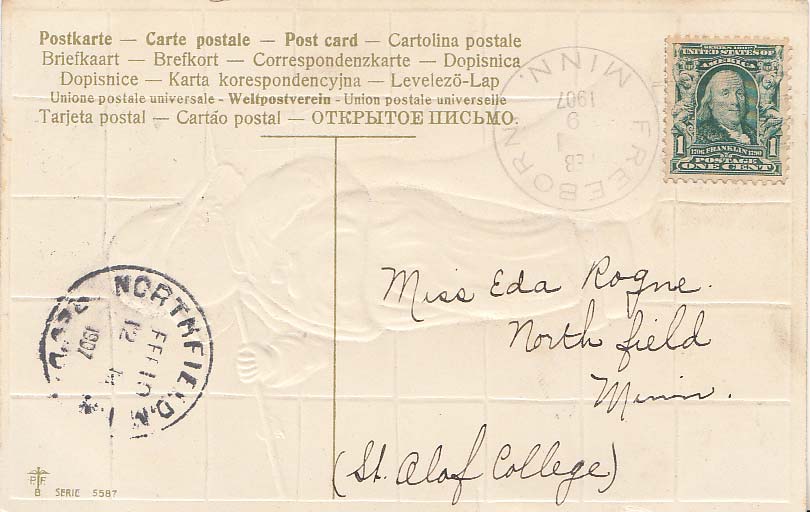 Postkarte — Carte postale — Post card — Cartolina postale
Briefkaart — Brefkort — Correspondenzkarte — Dopisnica
Dopisnice — Karta korespondencyjna — Levelező-Lap
Unione postale universale - Weltpostverein - Union postale universelle
Tarjeta postal — Cartão postal — ОТКРЫТОЕ ПИСЬМО.
FREEBORN. MINN.
FEB
9
1907
SERIES 1902
UNITED STATES OF
AMERICA
1706 FRANKLIN 1790
1 POSTAGE 1
ONE CENT
Miss Eda Rogne.
Northfield
Minn.
(St. Olaf College)
NORTHFIELD,
REC'D.
FEB 10
12 M
1907
P.F.B
SERIE 5587